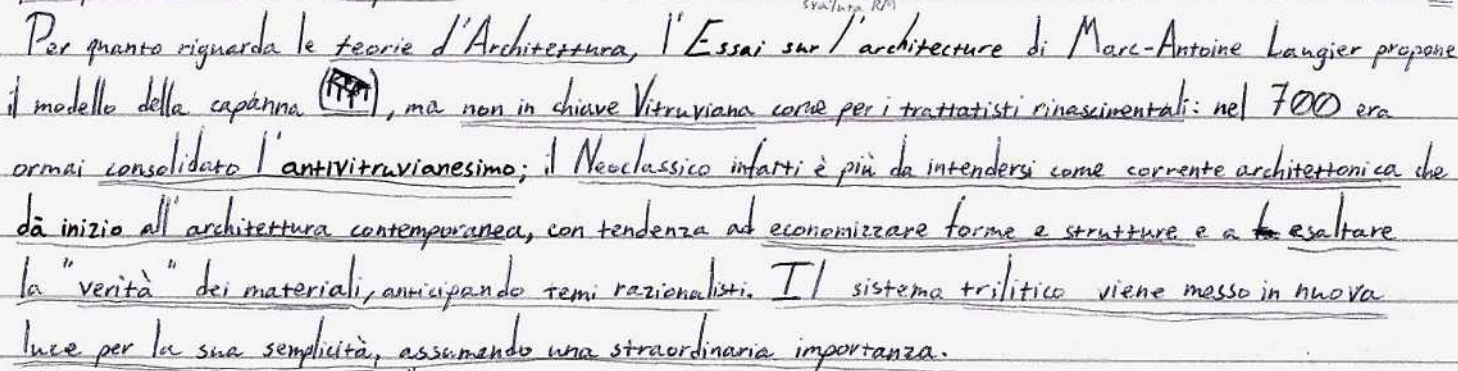 svaluta RM
Per quanto riguarda le teorie d'Architettura, l'Essai sur l'architecture di Marc-Antoine Laugier propone
il modello della capanna ( ), ma non in chiave Vitruviana come per i trattatisti rinascimentali: nel 700 era
ormai consolidato l'antivitruvianesimo; il Neoclassico infatti è più da intendersi come corrente architettonica che
dà inizio all'architettura contemporanea, con tendenza ad economizzare forme e strutture e a esaltare
la "verità" dei materiali, anticipando temi razionalisti. Il sistema trilitico viene messo in nuova
luce per la sua semplicità, assumendo una straordinaria importanza.